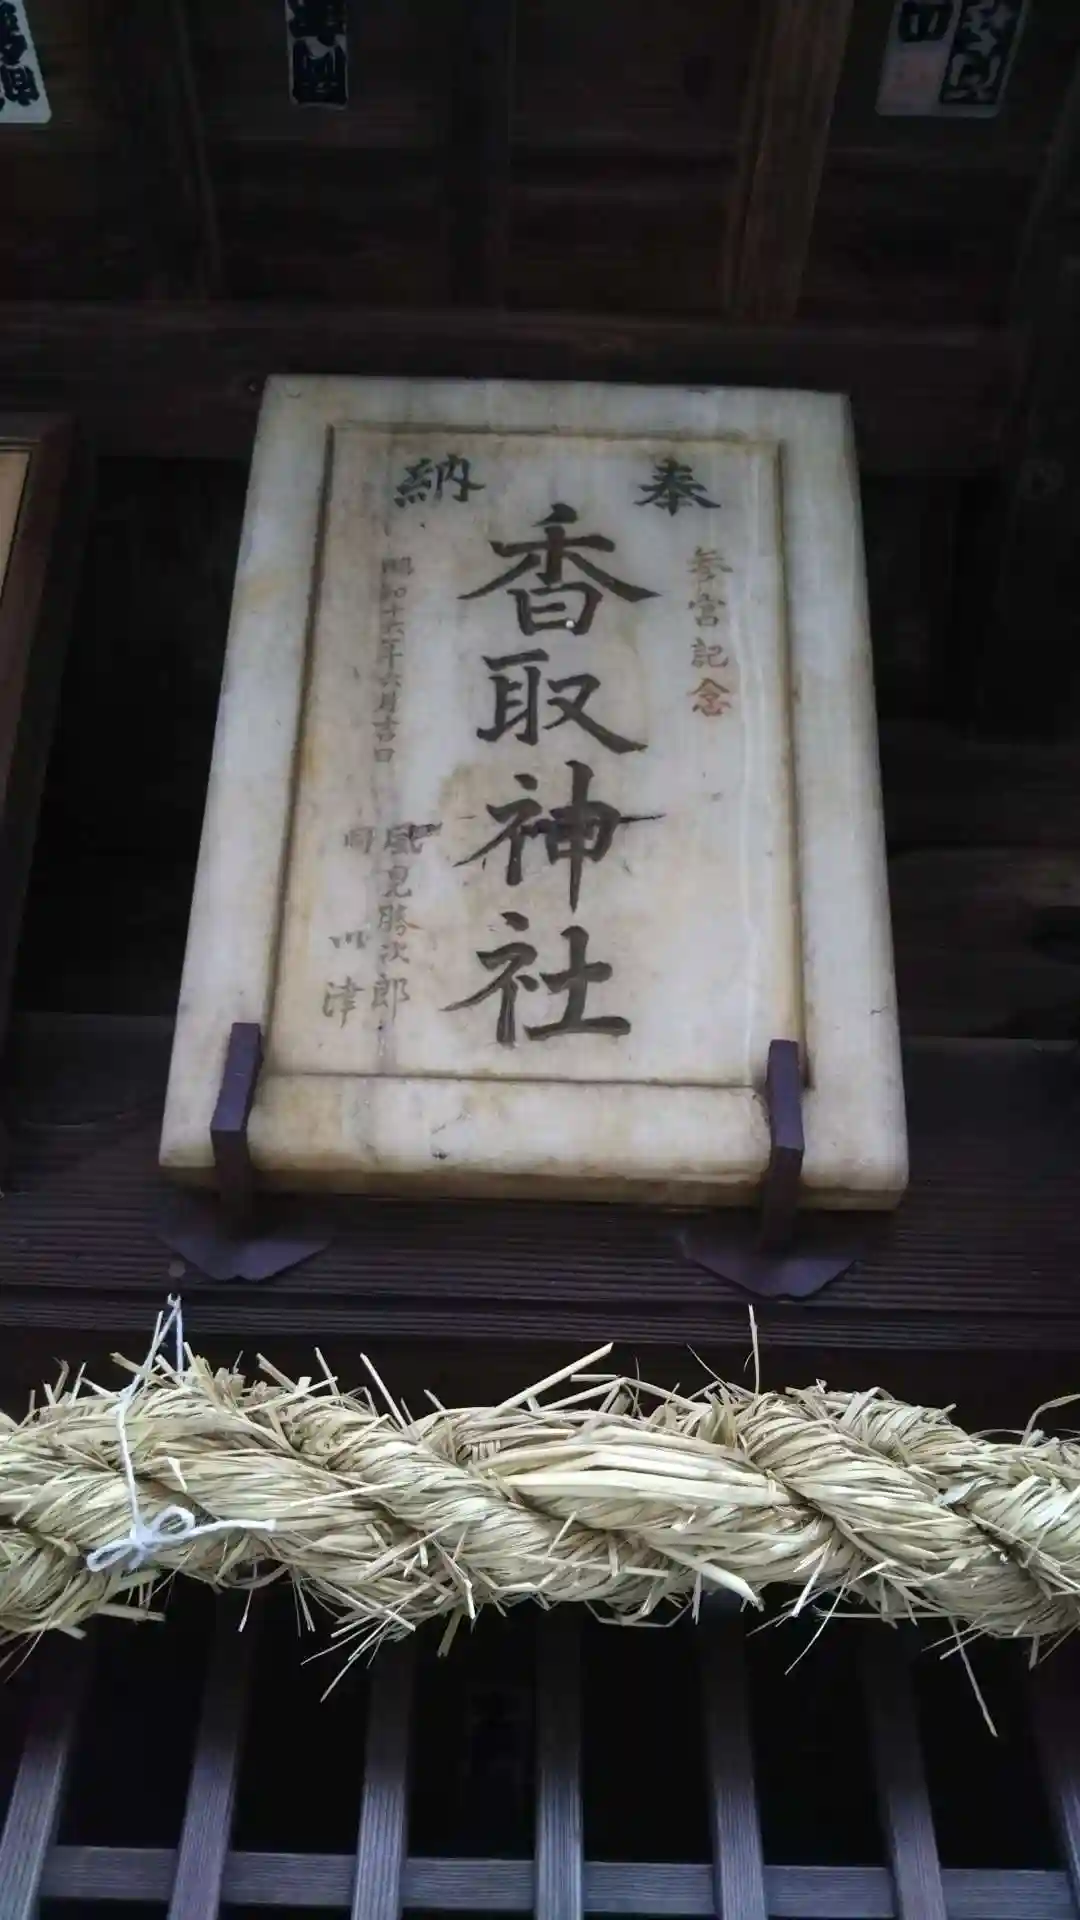 奉納
参宮記念
香取神社
昭和十六年六月吉日
風見勝次郎
同
津